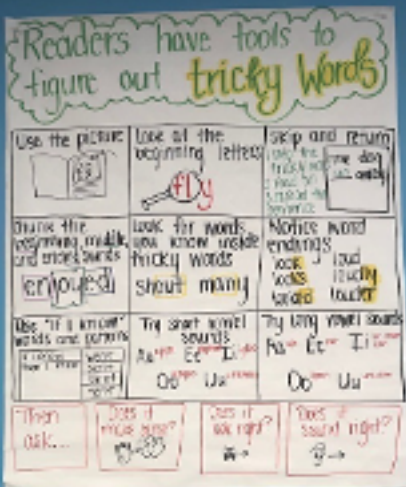 Readers have tools to
figure out tricky words
Use the picture
Look at the
beginning letters
fly
Skip and return
Chunk the
beginning, middle,
and ending sounds
enjoyed
Look for words
you know inside
tricky words
shout many
Notice word
endings
look loud
looks loudly
looked louder
Use "if I know"
words and patterns
Try short vowel
sounds
Aa Ee Ii
Oo Uu
Try long vowel sounds
Aa Ee Ii
Oo Uu
Then
ask...
Does it
make sense?
Does it
look right?
Does it
sound right?